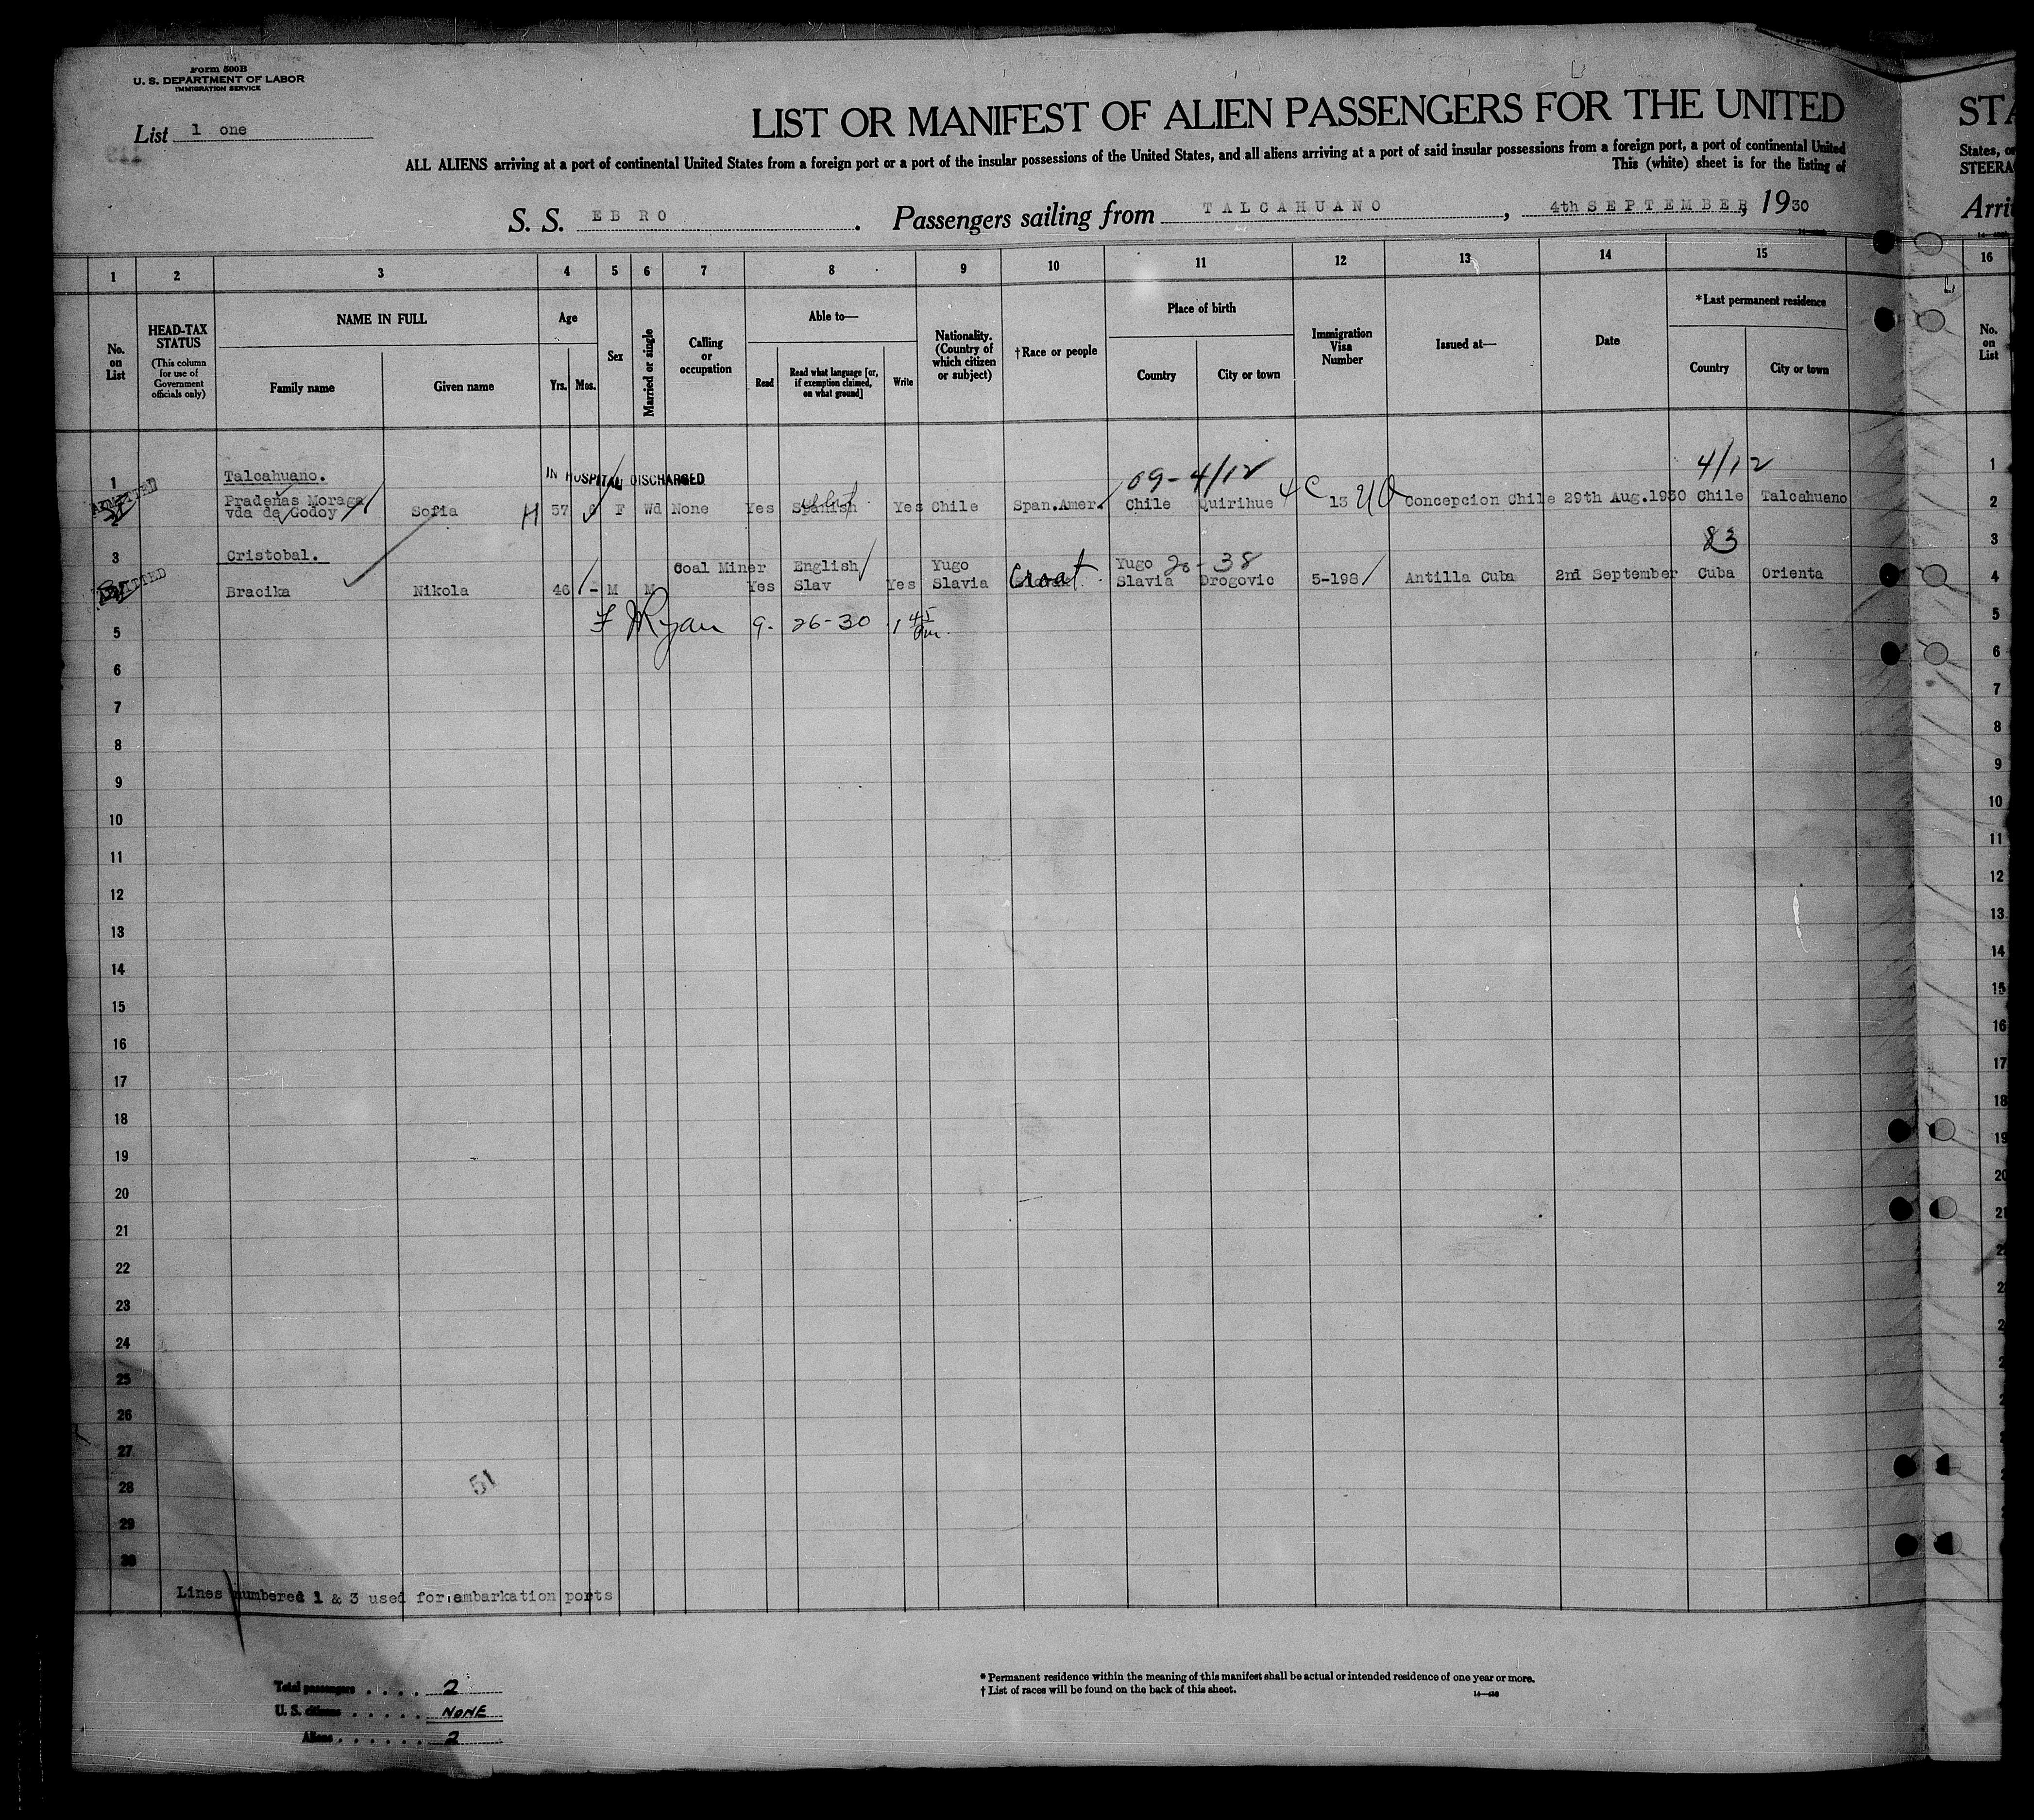 Form 500B
U. S. DEPARTMENT OF LABOR
IMMIGRATION SERVICE
List 1 one
LIST OR MANIFEST OF ALIEN PASSENGERS FOR THE UNITED
STA
ALL ALIENS arriving at a port of continental United States from a foreign port or a port of the insular possessions of the United States, and all aliens arriving at a port of said insular possessions from a foreign port, a port of continental United
States, or
This (white) sheet is for the listing of
STEERA
S. S. EBRO. Passengers sailing from TALCAHUANO, 4th SEPTEMBER, 1930
Arri
1 2 3 4 5 6 7 8 9 10 11 12 13 14 15 16
No. on List
HEAD-TAX STATUS
(This column for use of Government officials only)
NAME IN FULL
Family name
Given name
Age
Yrs. Mos.
Sex
Married or single
Calling or occupation
Able to—
Read
Read what language [or, if exemption claimed, on what ground]
Write
Nationality. (Country of which citizen or subject)
†Race or people
Place of birth
Country
City or town
Immigration Visa Number
Issued at—
Date
*Last permanent residence
Country
City or town
No. on List
1 Talcahuano. IN HOSPITAL DISCHARGED 09-4/12 4/12 1
ADMITTED
2 Pradeñas Moraga
vda de Godoy Sofia H 57 F Wd None Yes Spanish Yes Chile Span.Amer. Chile Quirihue 4C 13 Concepcion Chile 29th Aug.1930 Chile Talcahuano 2
3 Cristobal. 83 3
ADMITTED
Coal Miner English Yugo Yugo 20-38
Bracika Nikola 46 - M M Yes Slav Yes Slavia Croat Slavia Drogovic 5-198 Antilla Cuba 2nd September Cuba Orienta 4
5 F Ryan 9-26-30 1 45 Pm. 5
6 6
7 7
8 8
9 9
10 10
11 11
12 12
13 13
14 14
15 15
16 16
17 17
18 18
19 19
20 20
21 21
22
23
24
25
26
27
28 51
29
30
Lines numbered 1 & 3 used for embarkation ports
Total passengers . . . . 2
U. S. citizens . . . . . NONE
Aliens . . . . . . 2
* Permanent residence within the meaning of this manifest shall be actual or intended residence of one year or more.
† List of races will be found on the back of this sheet.